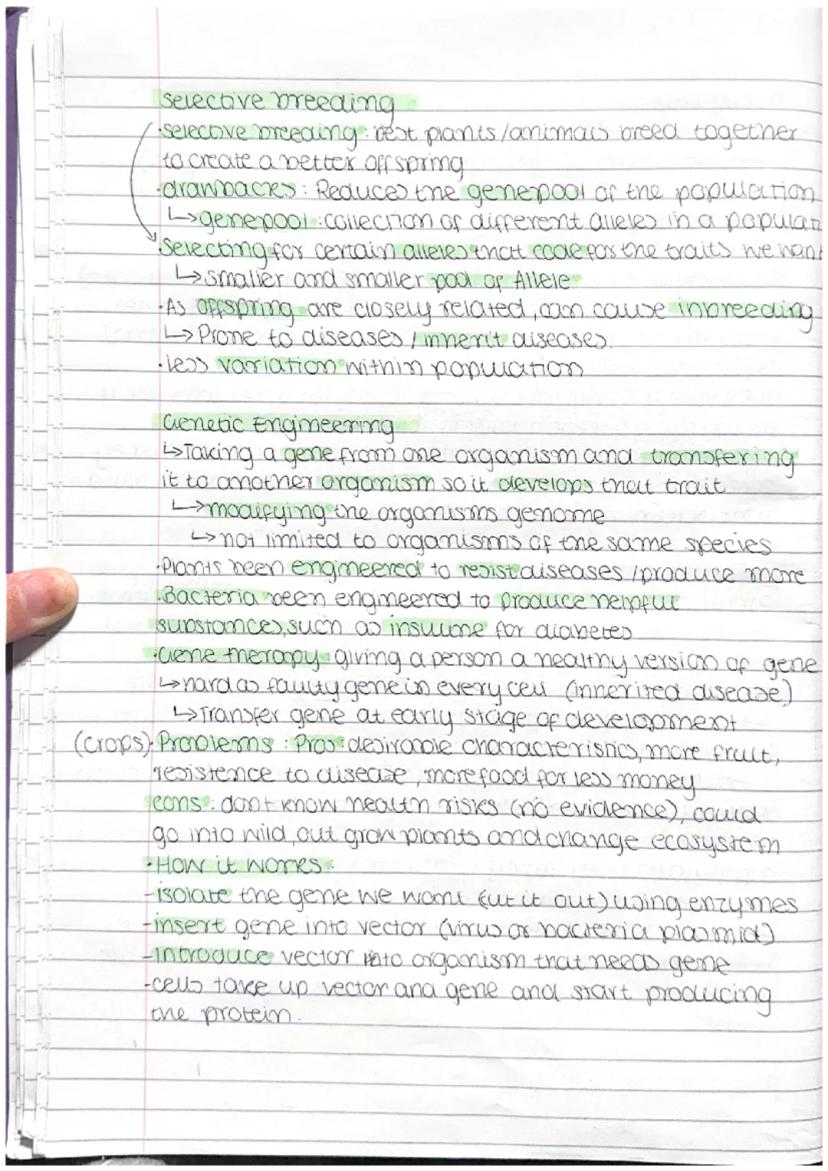 Selective breeding
·selective breeding: best plants/animals breed together
to create a better offspring
·drawbacks: Reduces the genepool of the population
↳genepool: collection of different alleles in a populat
·Selecting for certain alleles that code for the traits we want
↳smaller and smaller pool of Allele
·As offspring are closely related, can cause inbreeding
↳Prone to diseases / inherit diseases.
·less variation within population
Genetic Engineering
↳Taking a gene from one organism and transfering
it to another organism so it develops that trait
↳modifying the organisms genome
↳not limited to organisms of the same species
·Plants been engineered to resist diseases /produce more
·Bacteria been engineered to produce helpful
substances, such as insuline for diabetes
·Gene therapy: giving a person a healthy version of gene
↳hard as faulty gene in every cell (inherited disease)
↳Transfer gene at early stage of development
(crops)·Problems: Pros: desirable characteristics, more fruit,
resistence to disease, more food for less money
cons: dont know health risks (no evidence), could
go into wild, out grow plants and change ecosystem
·How it works:
-isolate the gene we want (cut it out) using enzymes
-insert gene into vector (virus or bacteria plasmid)
-introduce vector into organism that needs gene
-cells take up vector and gene and start producing
the protein.